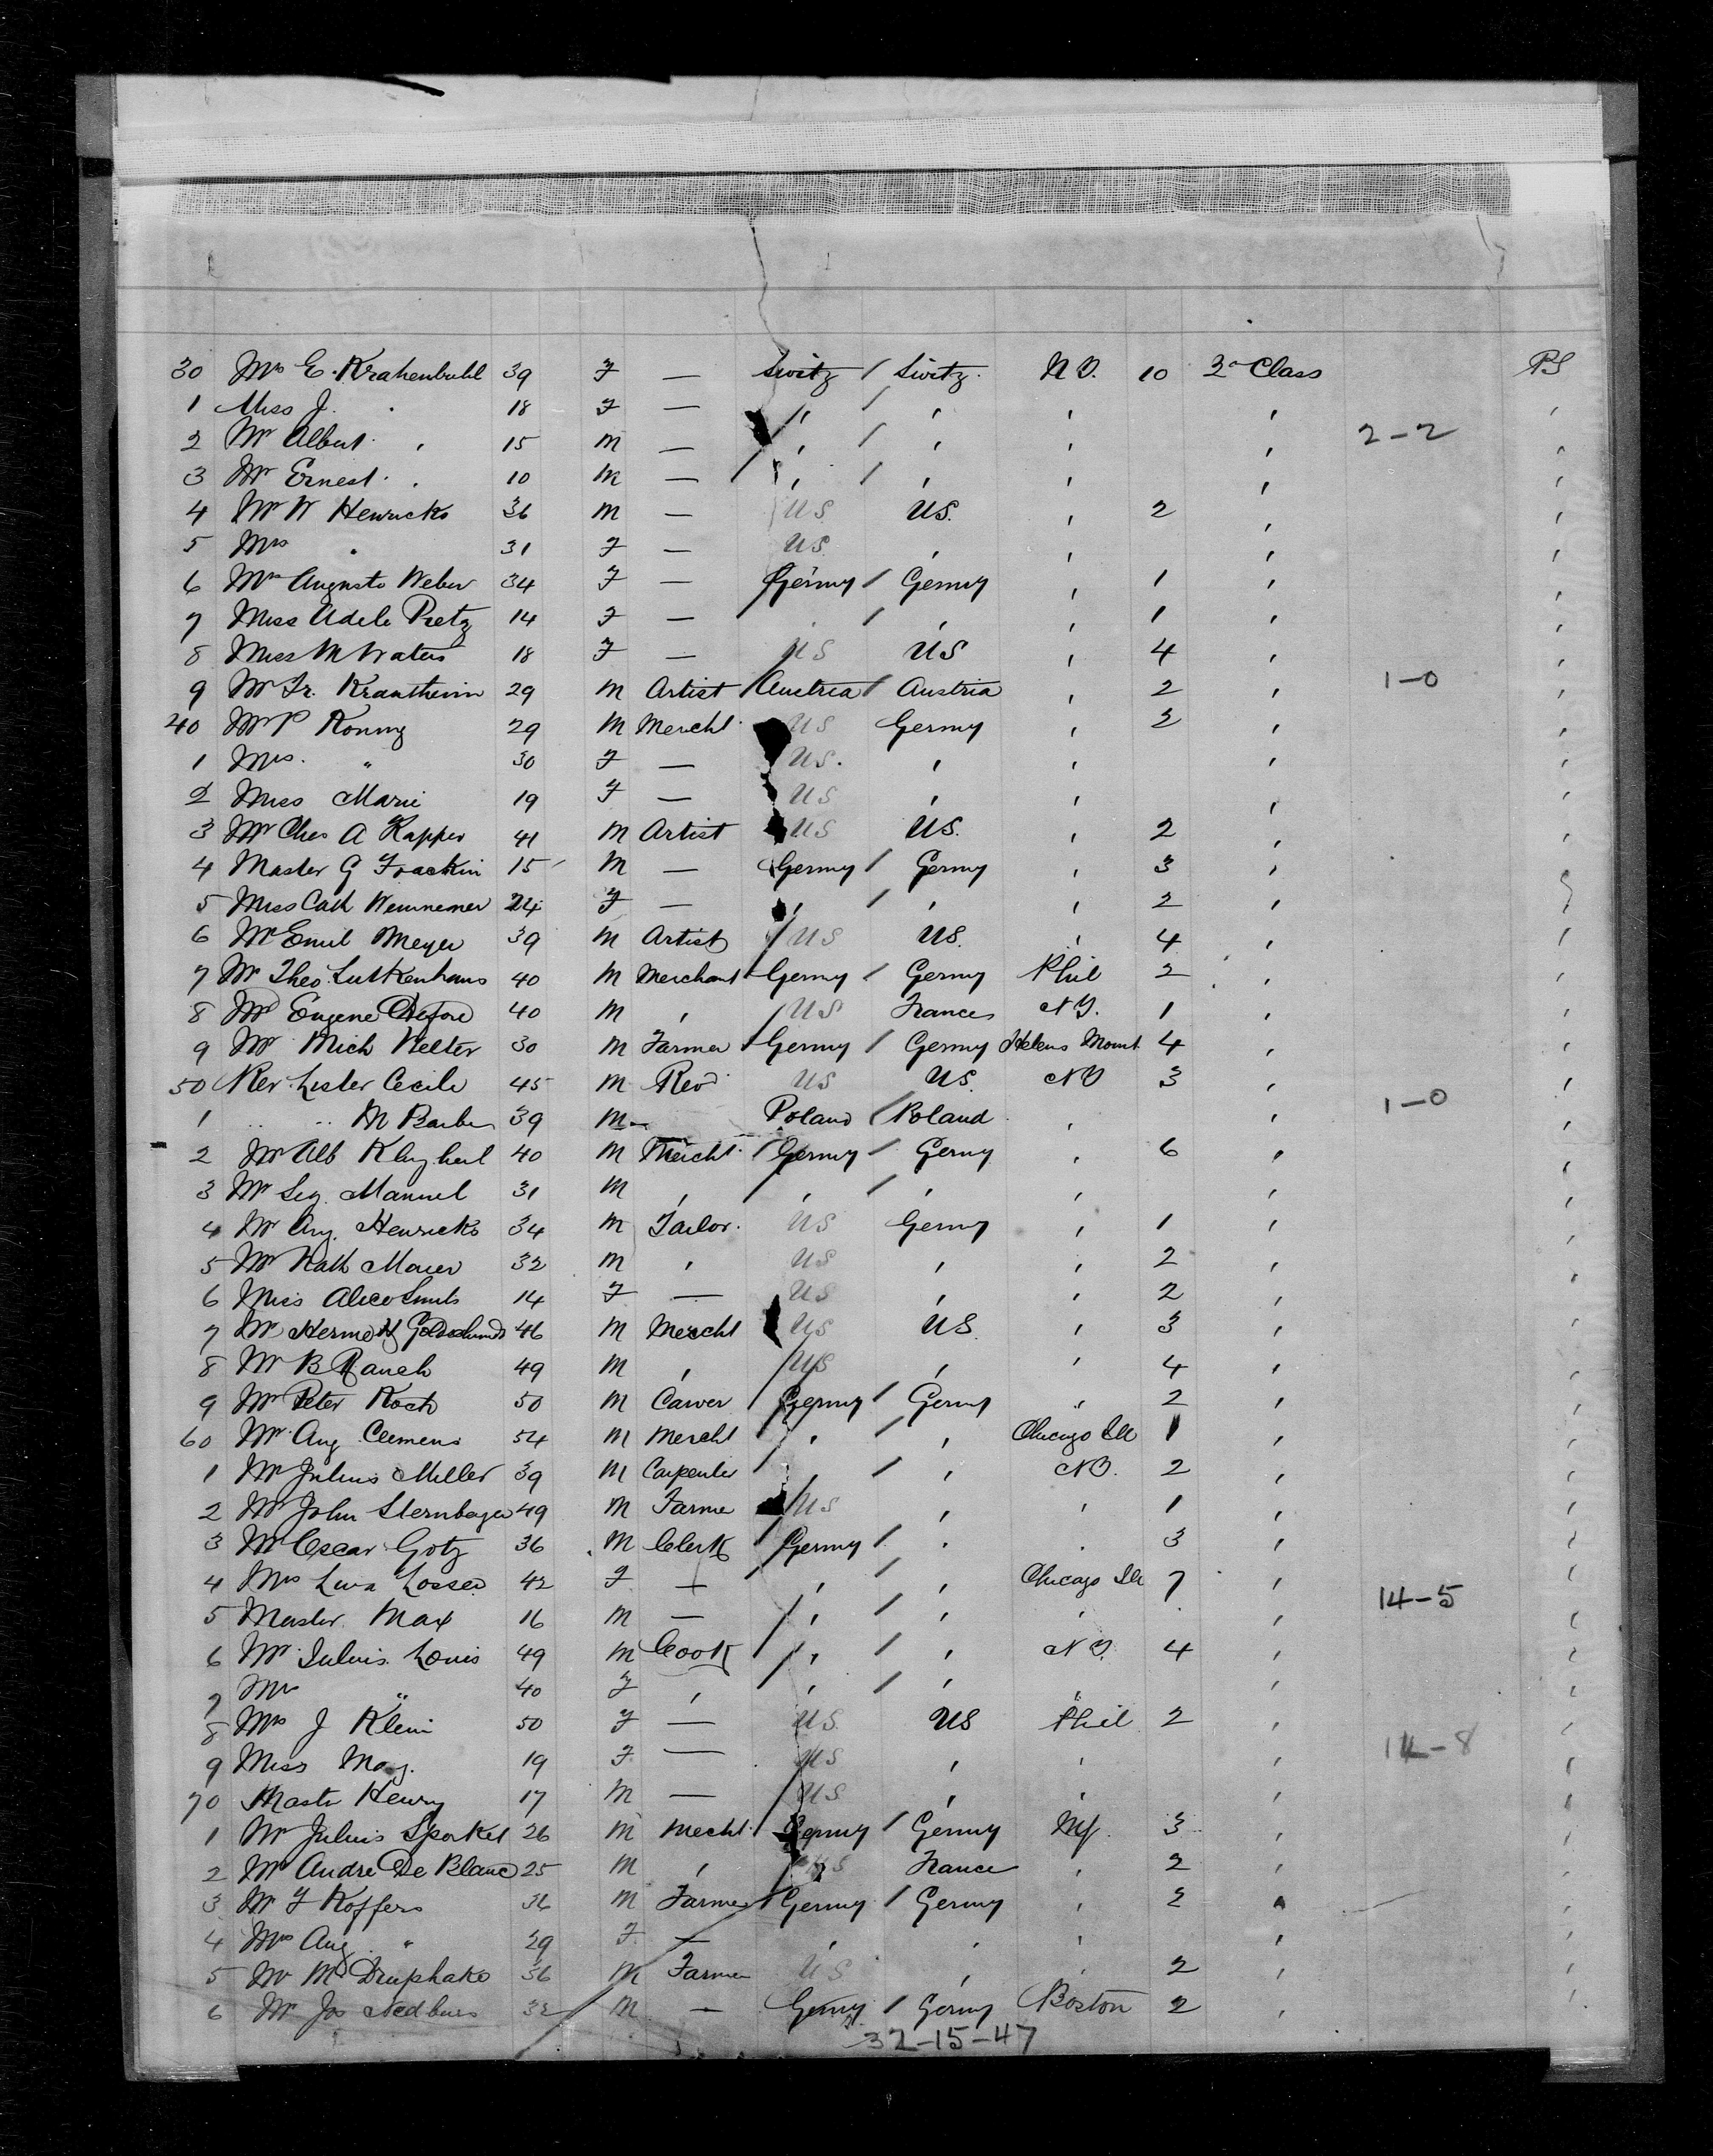 30 Mrs E. Krahenbuhl 39 F — Switz / Switz. N Y. 10 2d Class PS
1 Miss J. " 18 F — " / " " " "
2 Mr Albert " 15 M — " / " " " 2-2 "
3 Mr Ernest " 10 M — " / " " " "
4 Mr W Henricks 36 M — US US. " 2 " "
5 Mrs " 31 F — US " " " "
6 Mrs Augusta Weber 34 F — Germy / Germy " 1 " "
7 Miss Adele Pretz 14 F — " / " " 1 " "
8 Miss M Waters 18 F — US US " 4 " "
9 Mr Fr. Krantheim 29 M Artist / Austria / Austria " 2 " 1-0 "
40 Mr P Konnig 29 M Mercht US Germy " 3 " "
1 Mrs. " 30 F — US. " " " "
2 Miss Marie 19 F — US " " " "
3 Mr Chas A Kapper 41 M Artist US US. " 2 " "
4 Master G 15 M — Germy / Germy " 3 " "
5 Miss Cath 24 F — " / " " 2 " "
6 Mr Emil Meyer 39 M Artist / US US. " 4 " "
7 Mr Theo. Lutkenhaus 40 M Merchant Germy / Germy Phil 2 " "
8 Mr Eugene 40 M " / US France NY. 1 " "
9 Mr Mich Welter 30 M Farmer Germy / Germy Helena Mont 4 " "
50 Rev. Lester Cecile 45 M Revd US US. NY 3 " "
1 " " M Barber 39 M — Poland / Poland " " 1-0 "
2 Mr Alb 40 M Mercht / Germy / Germy " 6 " "
3 Mr Sig. Manuel 31 M " / " / " " " "
4 Mr Aug. Henricks 34 M Tailor. US Germy " 1 " "
5 Mr Nath Maier 32 M " US " " 2 " "
6 Miss Alice 14 F — US " " 2 " "
7 Mr Goldschmidt 46 M Mercht US US " 3 " "
8 Mr B Rauch 49 M " / US " " 4 " "
9 Mr Peter Koch 50 M Carver Germy / Germy " 2 " "
60 Mr Aug Clemens 54 M Mercht / " / " Chicago Ill 1 " "
1 Mr Julius Miller 39 M Carpenter / " / " NY. 2 " "
2 Mr John 49 M Farmer US " " 1 " "
3 Mr Oscar Gotz 36 M Clerk / Germy / " " 3 " "
4 Mrs 42 F — / " / " Chicago Ill 7 " "
5 Master Max 16 M — / " / " " " 14-5 "
6 Mr Julius Louis 49 M Cook / " / " NY. 4 " "
7 Mrs " 40 F " " / " " " "
8 Mrs J Klein 50 F — US. US Phil 2 " "
9 Miss May. 19 F — US " " " 14-8 "
70 Master Henry 17 M — / US " " " "
1 Mr Julius Sporkel 26 M Mecht Germy / Germy NY. 3 " "
2 Mr Andre De Blanc 25 M " US France " 2 " "
3 Mr F Koffers 36 M Farmer / Germy / Germy " 2 " "
4 Mrs Aug " 29 F — " " " " "
5 Mr M 36 M Farmer US " " 2 " "
6 Mr Jos 32 M — Germy / Germy Boston 2 " "
32-15-47